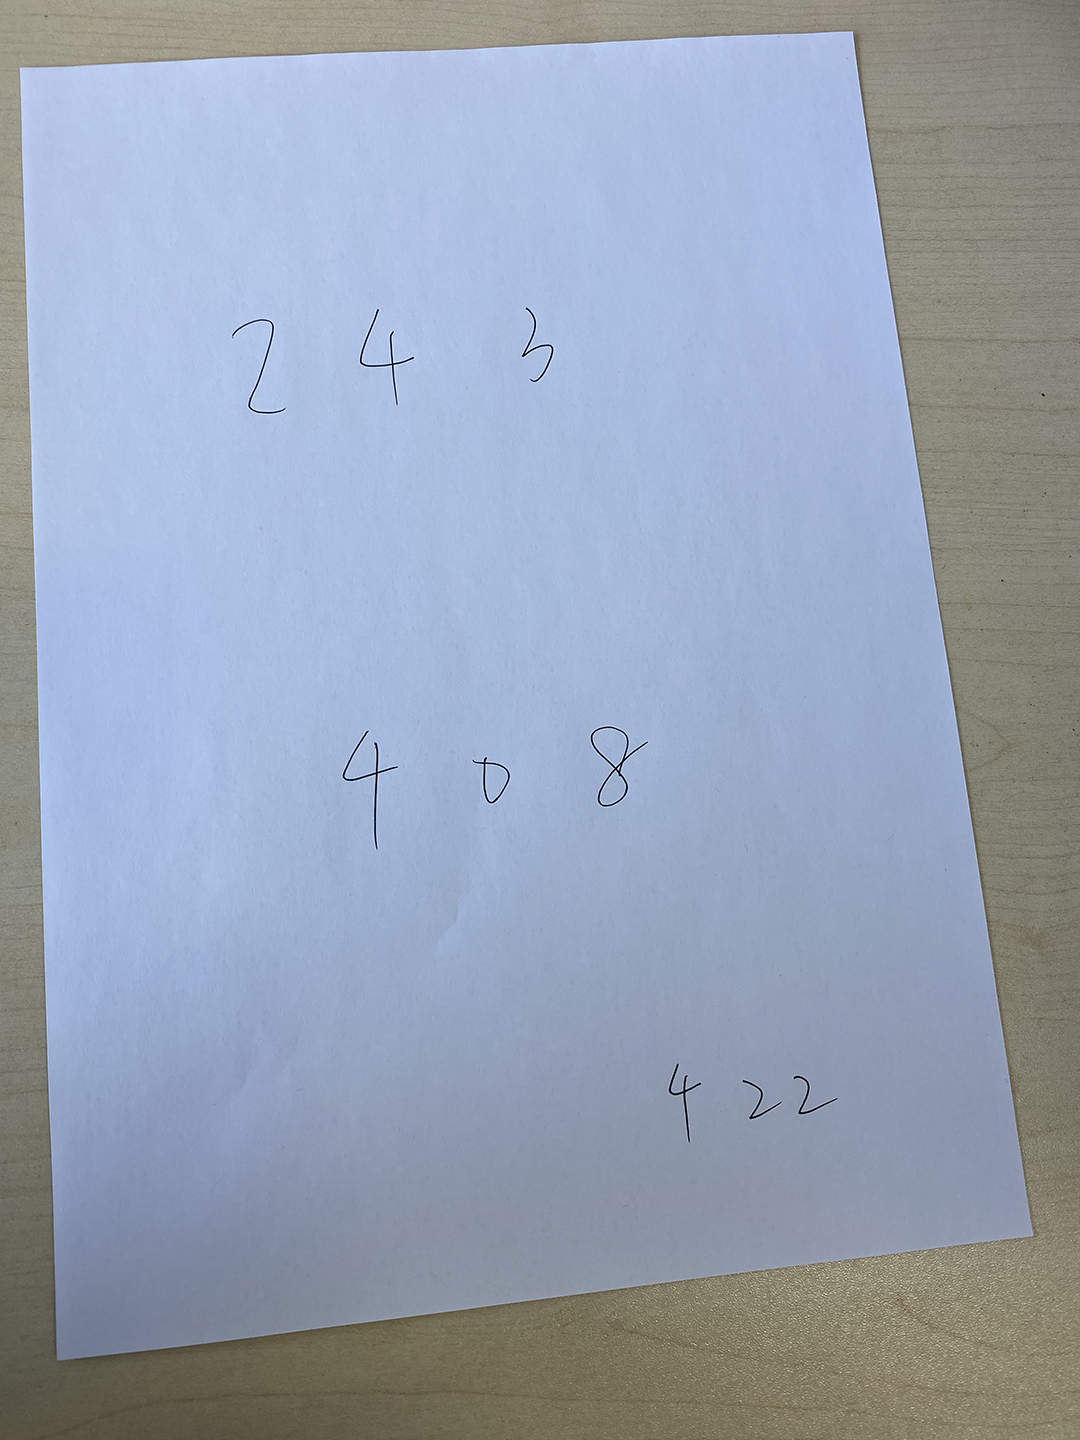 2 4 3
4 0 8
4 2 2